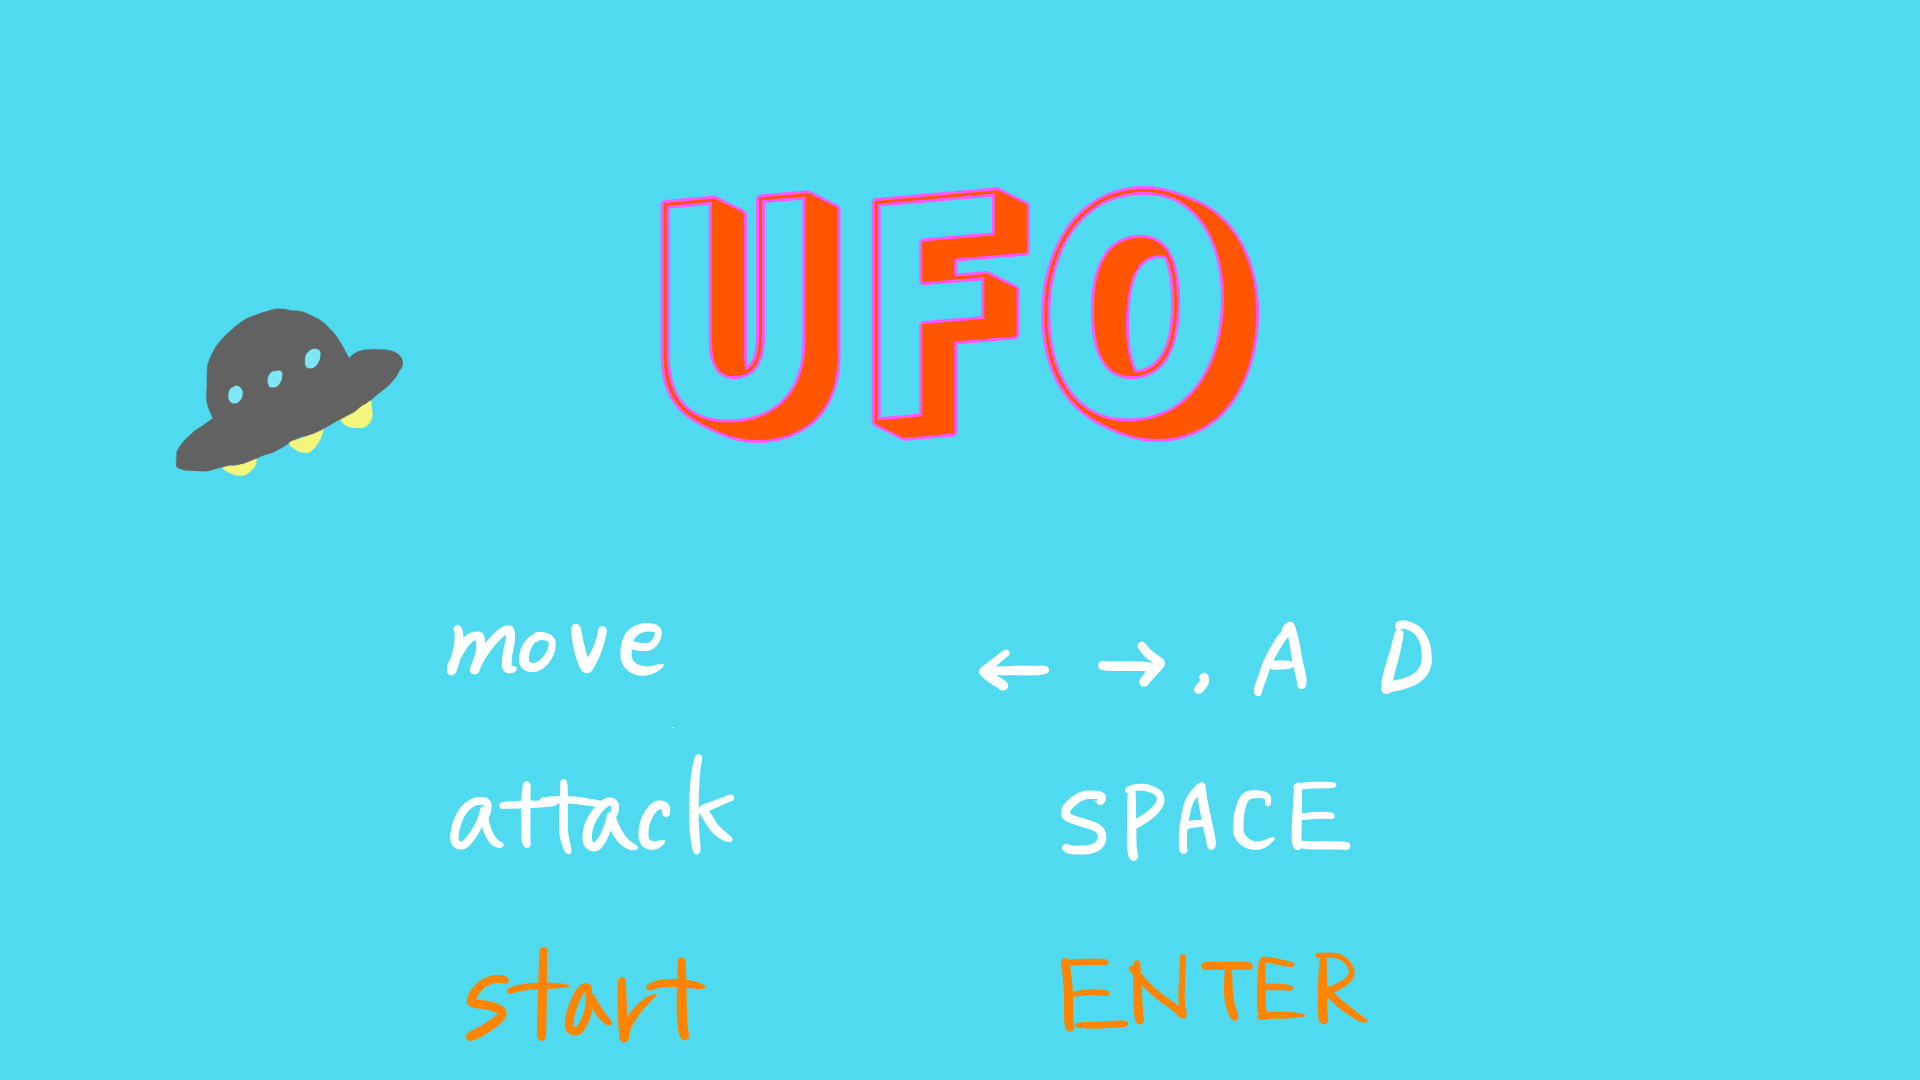 UFO
move ← →, A D
attack SPACE
start ENTER